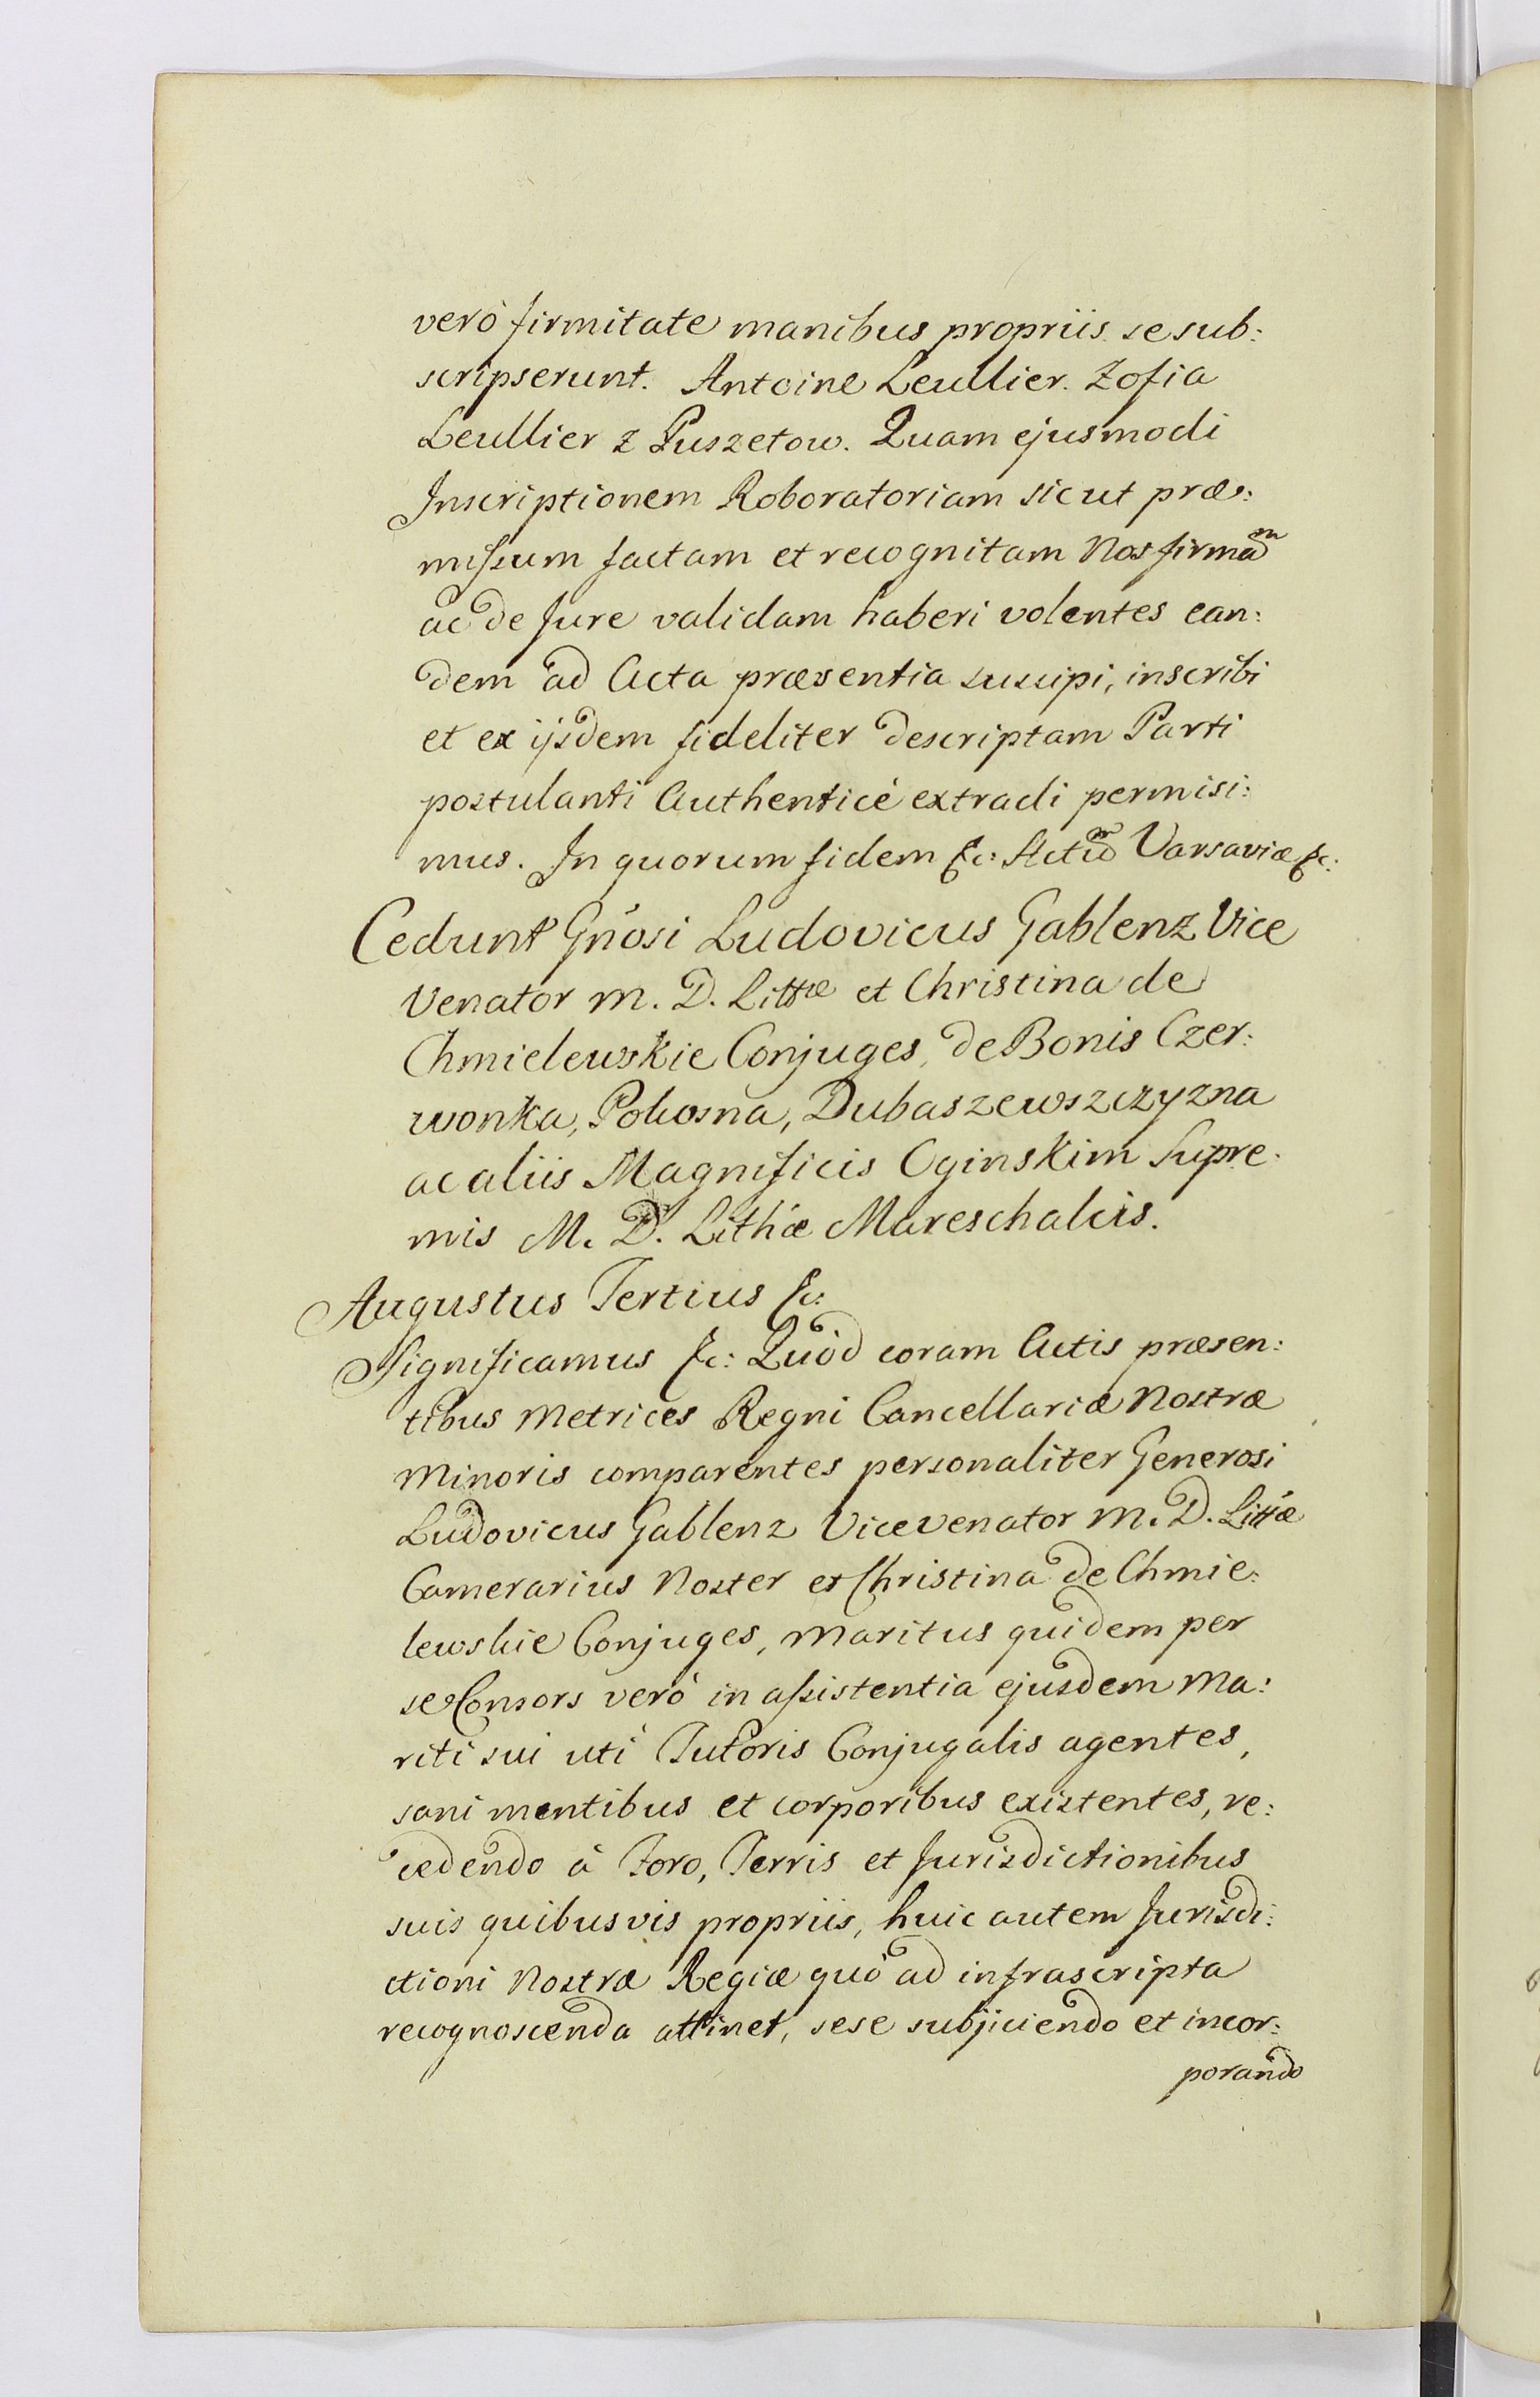 verò firmitate manibus propriis se sub:
scripserunt. Antoine Leullier. Zofia
Leullier z Puszetow. Quam ejusmodi
Inscriptionem Roboratoriam sicut præ:
missum factam et recognitam Nos firmam
ac de Jure validam haberi volentes ean:
dem ad Acta præsentia suscipi, inscribi
et ex ijsdem fideliter descriptam Parti
postulanti Authenticè extradi permisi:
mus. In quorum fidem &c: Actum Varsaviæ &c:
Cedunt Gñosi Ludovicus Gablenz Vice
Venator M. D. Littæ et Christina de
Chmielewskie Conjuges, de Bonis Czer:
wonka, Pohosna, Dubaszewszczyzna
ac aliis Magnificis Oginskim Supre:
mis M. D. Lithæ Mareschalcis.
Augustus Tertius &c:
Significamus &c: Quòd coram Actis præsen:
tibus Metrices Regni Cancellariæ Nostræ
Minoris comparentes personaliter Generosi
Ludovicus Gablenz Vicevenator M. D. Littæ
Camerarius Noster et Christina de Chmie:
lewskie Conjuges, Maritus quidem per
se Consors verò in assistentia ejusdem Ma:
riti sui uti Tutoris Conjugalis agentes,
sani mentibus et corporibus existentes, re:
cedendo à Foro, Terris et Jurisdictionibus
suis quibusvis propriis, huic autem Jurisdi:
ctioni Nostræ Regiæ quò ad infrascripta
recognoscenda attinet, sese subjiciendo et incor:
porando